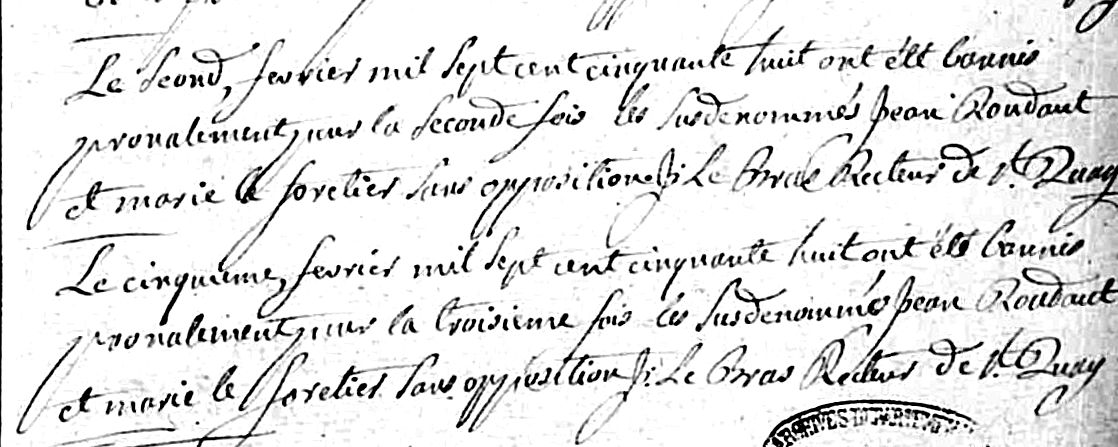 Le second, fevrier mil sept cent cinquante huit ont été bannis
pronalement pour la seconde fois les susdenommés Jean Roudaut
et marie le foretier sans opposition J: Le Bras Recteur de St. Quay
Le cinquieme, fevrier mil sept cent cinquante huit ont été bannis
pronalement pour la troisieme fois les susdenommés Jean Roudaut
et marie le foretier sans opposition J: Le Bras Recteur de St. Quay